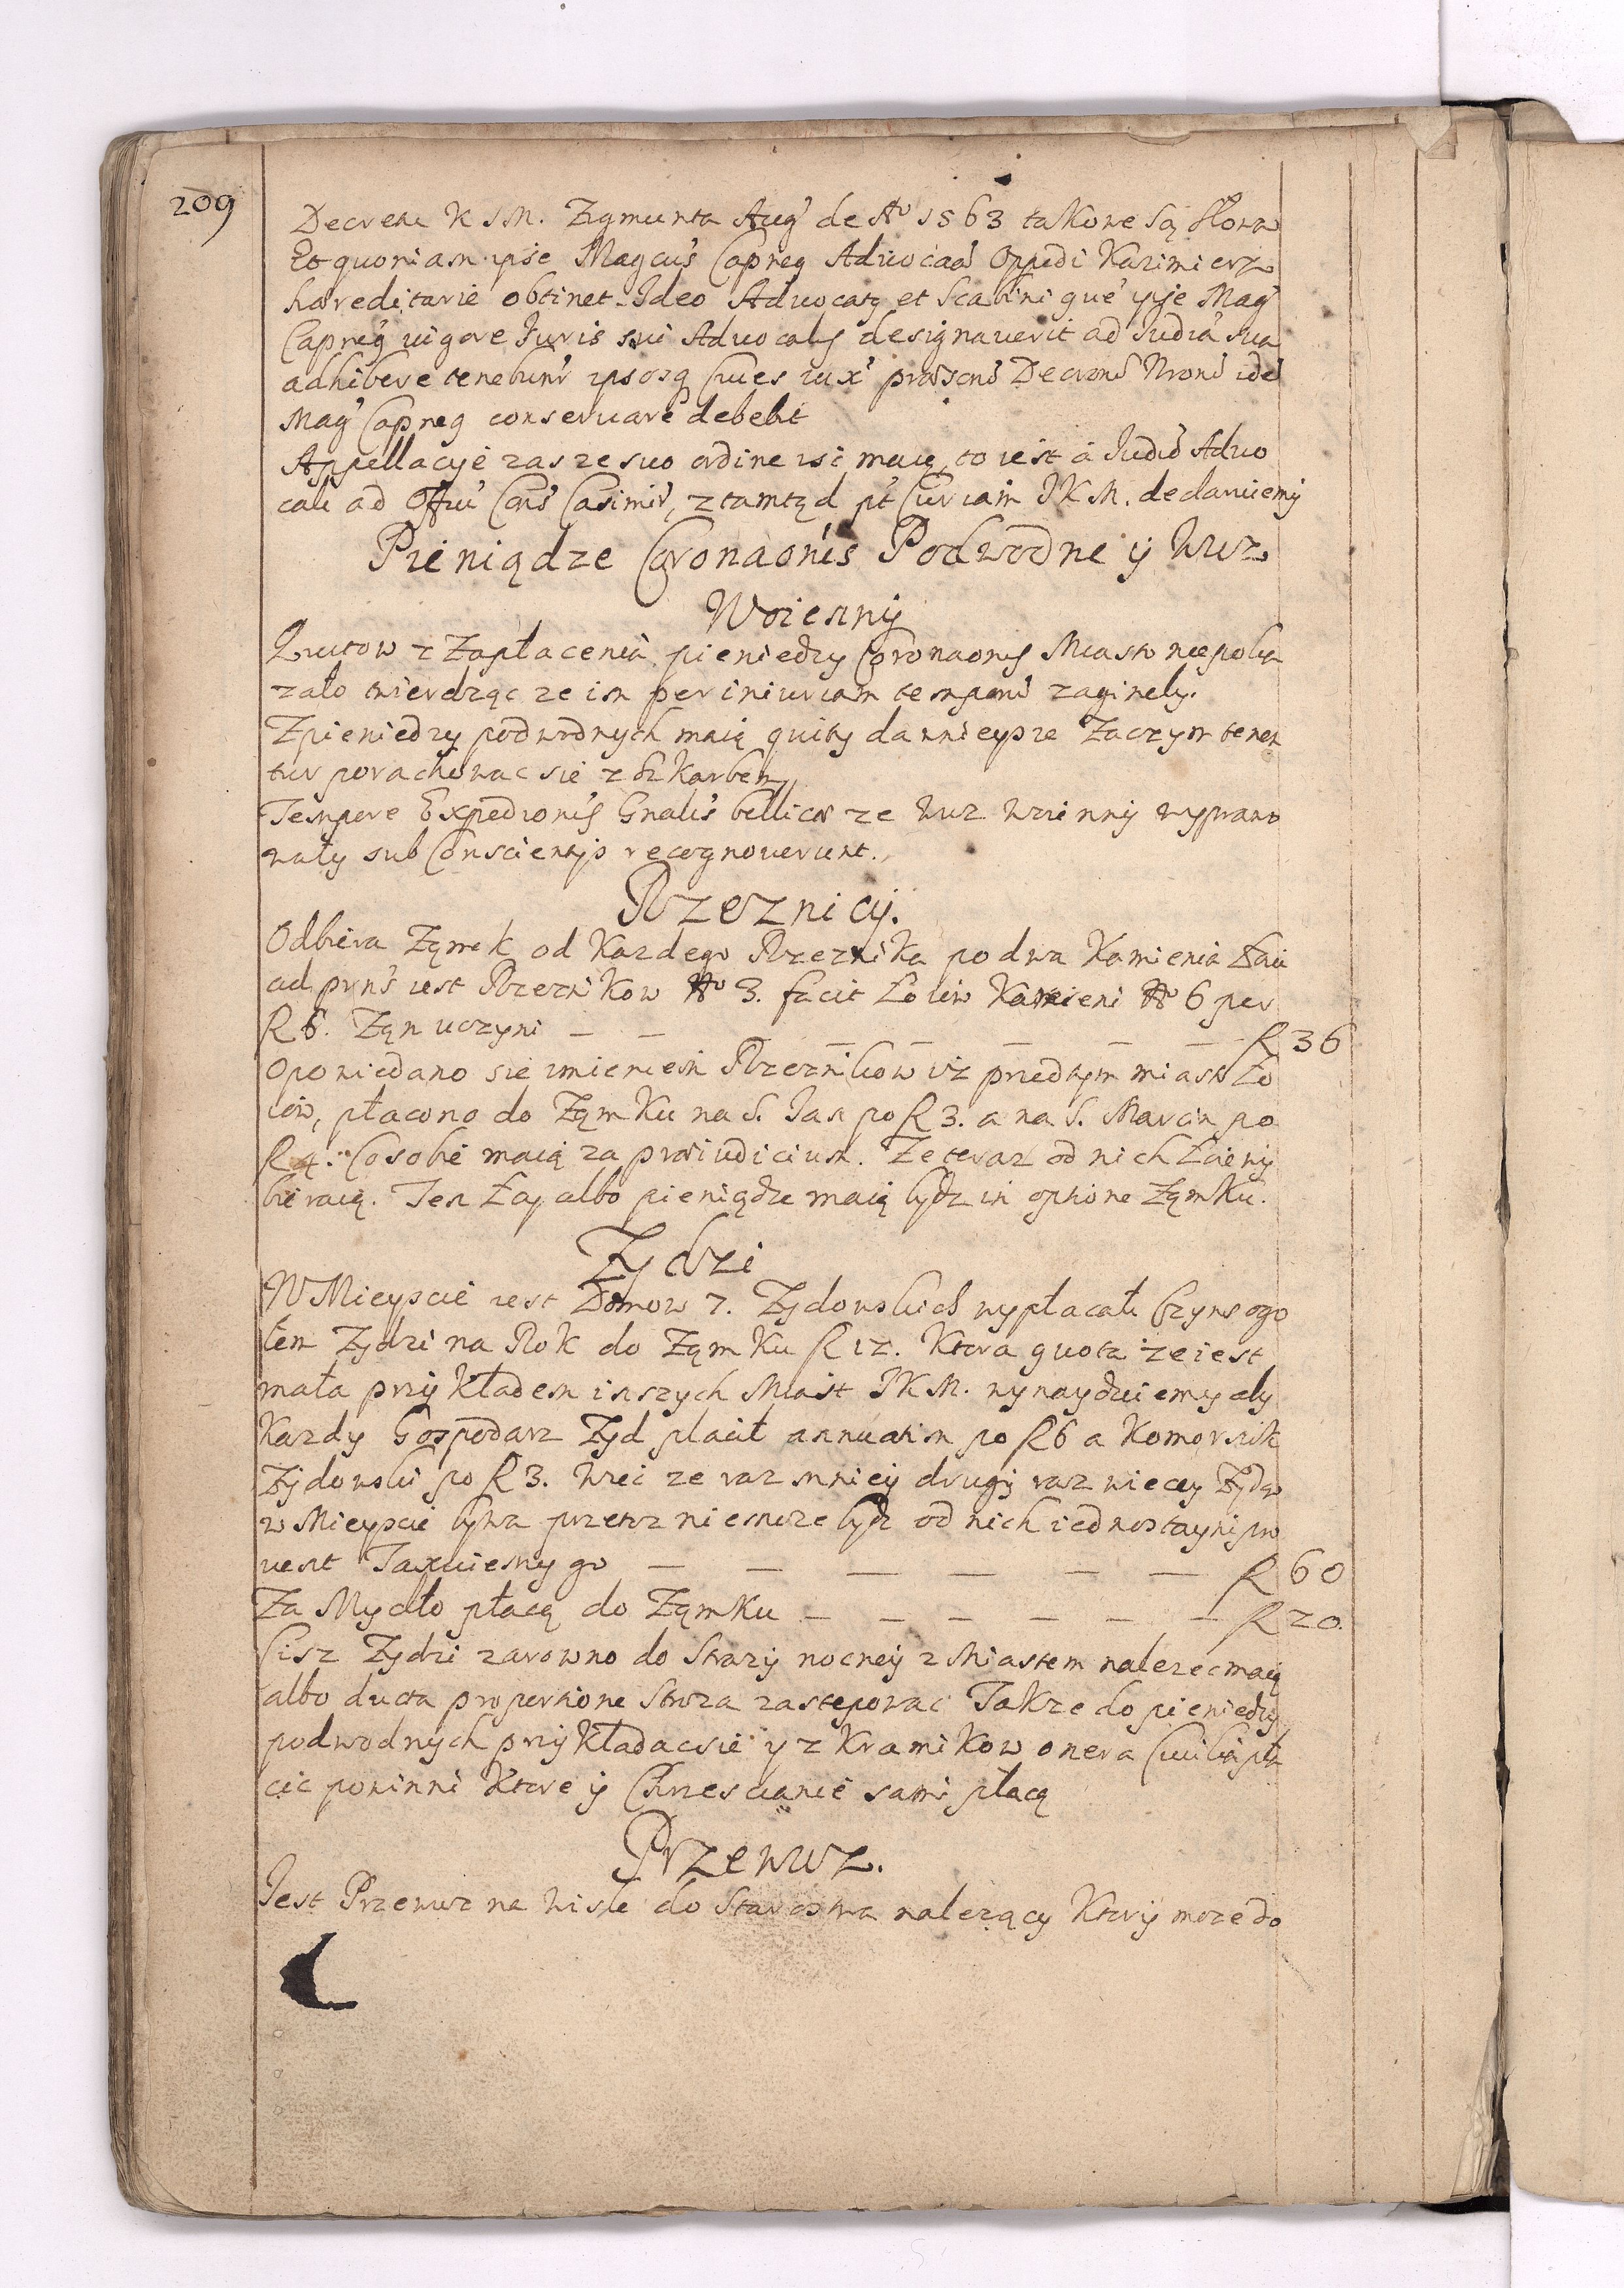 209
Decretu K J M. Zigmunta Aug' de Aᵒ 1563 takowe są słowa
Et quoniam ipse Magcus Capneg Oppidi Kazimierz
haereditarie obtinet. Ideo Advocatq et Scabini que' ipse Mag'
Capneg vigore Juris sui designaverit ad Judia' sua
adhibere tenebunt' ipsosq Cives iux' Nroni'
Mag' Capneg conservare debebit
Appellacye zas ze suo ordine isc maią, to iest á Judi'o Advo
cali ad Offiu' Casimir', ztamtąd Curiam JKM. declaruiemy
Pieniądze Coronaonis Podwodne y Wuz
Woienny
Quitow z Zapłacenia pieniedzy Coronaonis Miasto niepoka
zało twierdząc ze im per iniuriam tempori' zagineły.
Z pieniedzy podwodnych maią quity dawnieysze Zaczym tenen
tur porachowac sie z Skarbem
Tempore Expedionis Gnalis bellicae ze wuz wzienny wyprawo
wały sub Conscientijs recognoverunt.
Rzeznicy.
Odbiera Ząmek od Kazdego Rzeznika po dwa Kamienia Łoiu
ad pnns iest Rzeznikow Nᵒ 3. facit Łoiow Kamieni Nᵒ 6 per
R 6. Ząn uczyni — — — — — — R 36
Opowiedano sie imieniem Rzeznikow iż przedtym miasto Ło
iow, płacono do Ząmku na S. Jan po R 3. a na S. Marcin po
R 4. Co sobie maią za praeiudicium. Ze teraz od nich Łoie wy
bieraią. Ten Łoy albo pieniądze maią bydz in optione Ząmku.
Zydzi
W Mieyscie iest Domow 7. Zydowskich wypłacali Czyns ogo
łem Zydzi na Rok do Ząmku R 12. Ktora quota ze iest
mała przykładem inszych Miast JKM. wynayduiemy aby
Kazdy Gospodarz Zyd płacił annuatim po R 6 a Komornik
Zydowski po R 3. Wiec ze raz mniey drugi raz wiecey Zydow
w Mieyscie bywa przetoz niemoze bydz od nich iednostayni pro
vent Taxuiemy go — — — — — — R 60
Za Mydło płacą do Ząmku — — — — — — R 20.
Cisz Zydzi zarowno do Strazy nocney z Miastem nalezec maią
albo ducta proportione Stroza zastepowac Takze do pieniedzy
podwodnych przykładac sie y z Kramikow onera Civilia pła
cic powinni Ktore y Chrzescianie sami płacą
Przewuz.
Jest Przewuz na Wisle do Starostwa nalezący Ktory moze do